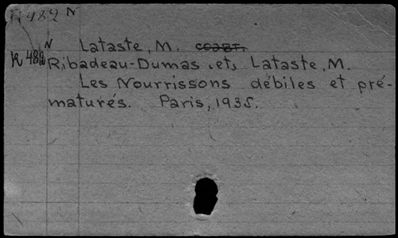 K 482 N
Lataste, M. coавт.
K 482 N
Ribadeau-Dumas et Lataste, M.
Les Nourrissons débiles et pré-
maturés. Paris, 1935.